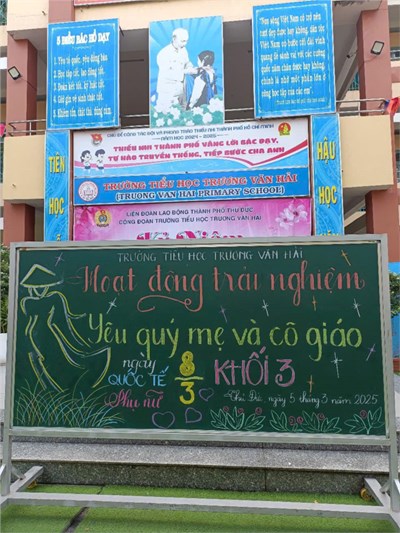 5 ĐIỀU BÁC HỒ DẠY
1. Yêu tổ quốc, yêu đồng bào
2. Học tập tốt, lao động tốt.
3. Đoàn kết tốt, kỷ luật tốt.
4. Giữ gìn vệ sinh thật tốt.
5. Khiêm tốn, thật thà, dũng cảm
Non sông Việt Nam có trở nên
tươi đẹp hay không, dân tộc
Việt Nam có bước tới đài vinh
quang để sánh vai với các cường
quốc năm châu được hay không,
chính là nhờ một phần lớn ở
công học tập của các em
CHỦ ĐỀ CÔNG TÁC ĐỘI VÀ PHONG TRÀO THIẾU NHI THÀNH PHỐ HỒ CHÍ MINH
NĂM HỌC 2024 - 2025
THIẾU NHI THÀNH PHỐ VÂNG LỜI BÁC DẠY,
TỰ HÀO TRUYỀN THỐNG, TIẾP BƯỚC CHA ANH
TRƯỜNG TIỂU HỌC TRƯƠNG VĂN HẢI
(TRUONG VAN HAI PRIMARY SCHOOL)
LIÊN ĐOÀN LAO ĐỘNG THÀNH PHỐ THỦ ĐỨC
CÔNG ĐOÀN TRƯỜNG TIỂU HỌC TRƯƠNG VĂN HẢI
TIÊN
HỌC
HẬU
HỌC
TRƯỜNG TIỂU HỌC TRƯƠNG VĂN HẢI
Hoạt động trải nghiệm
Yêu quý mẹ và cô giáo
ngày
QUỐC TẾ
Phụ nữ
8/3
KHỐI 3
Thủ Đức, ngày 5 tháng 3 năm 2025